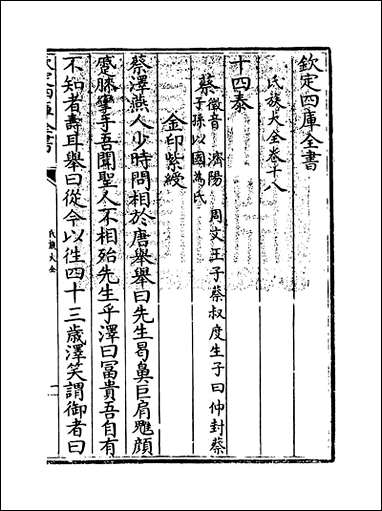 欽定四庫全書
氏族大全卷十八
十四泰
蔡
徵音 濟陽 周文王子蔡叔度生子曰仲封蔡
子孫以國為氏
金印紫綬
蔡澤燕人少時問相於唐舉舉曰先生曷鼻巨肩魋顔
蹙膝攣手吾聞聖人不相殆先生乎澤曰冨貴吾自有
不知者壽耳舉曰從今以往四十三歲澤笑謂御者曰
氏族大全
一